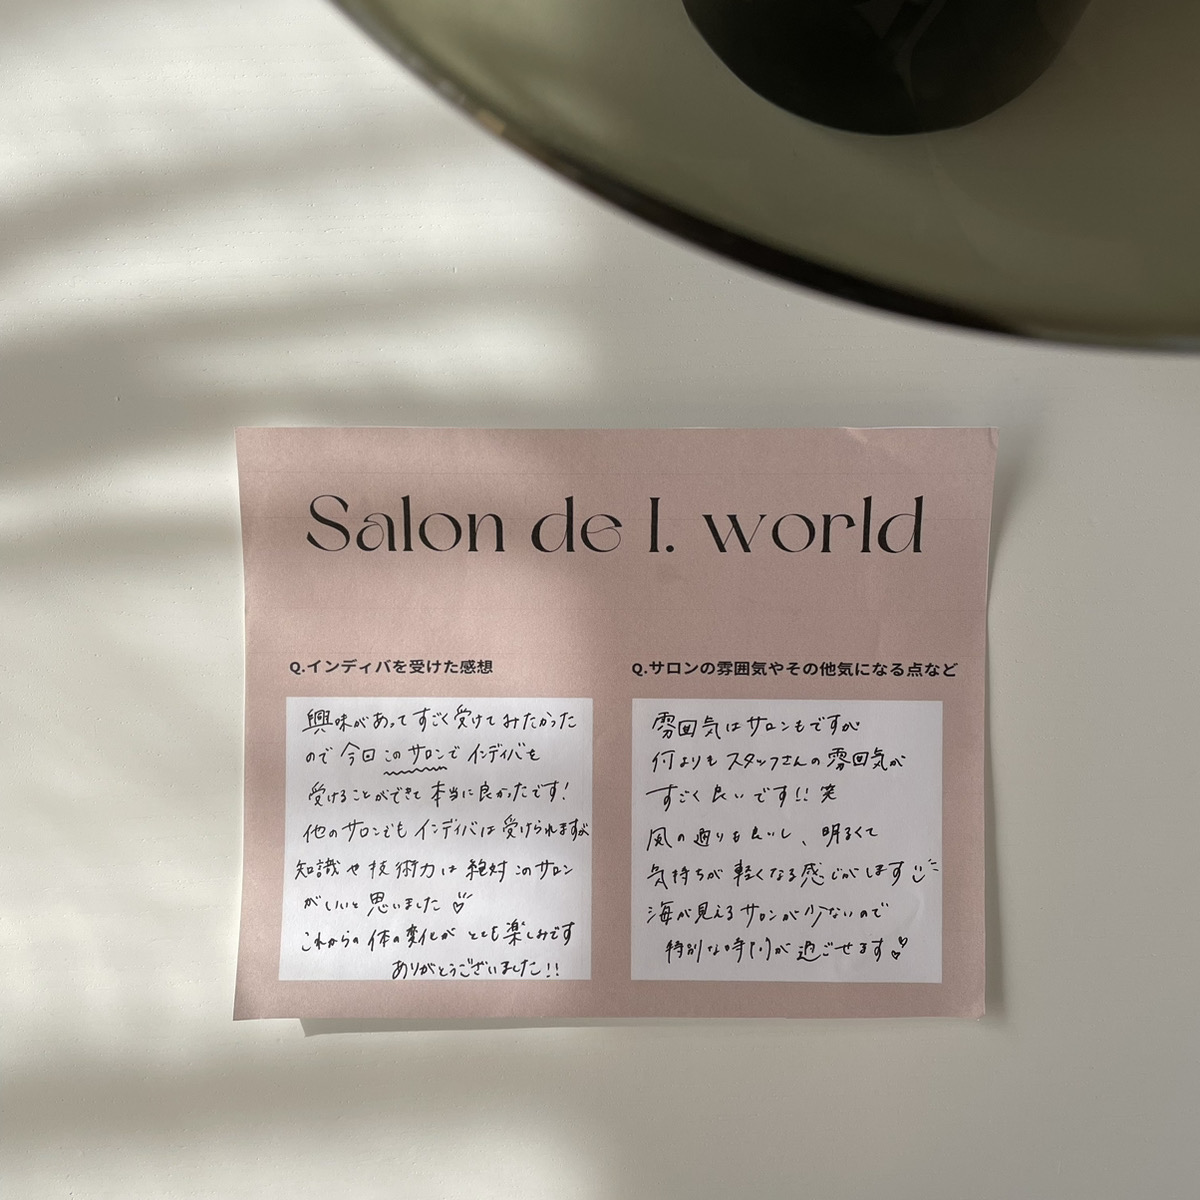 Salon de I. world
Q.インディバを受けた感想
興味があってすごく受けてみたかった
ので今回このサロンでインディバを
受けることができて本当に良かったです!
他のサロンでもインディバは受けられますが
知識や技術力は絶対このサロン
がいいと思いました♡
これからの体の変化がとても楽しみです
ありがとうございました!!
Q.サロンの雰囲気やその他気になる点など
雰囲気はサロンもですが
何よりもスタッフさんの雰囲気が
すごく良いです!!笑
風の通りも良いし、明るくて
気持ちが軽くなる感じがします
海が見えるサロンが少ないので
特別な時間が過ごせます♡